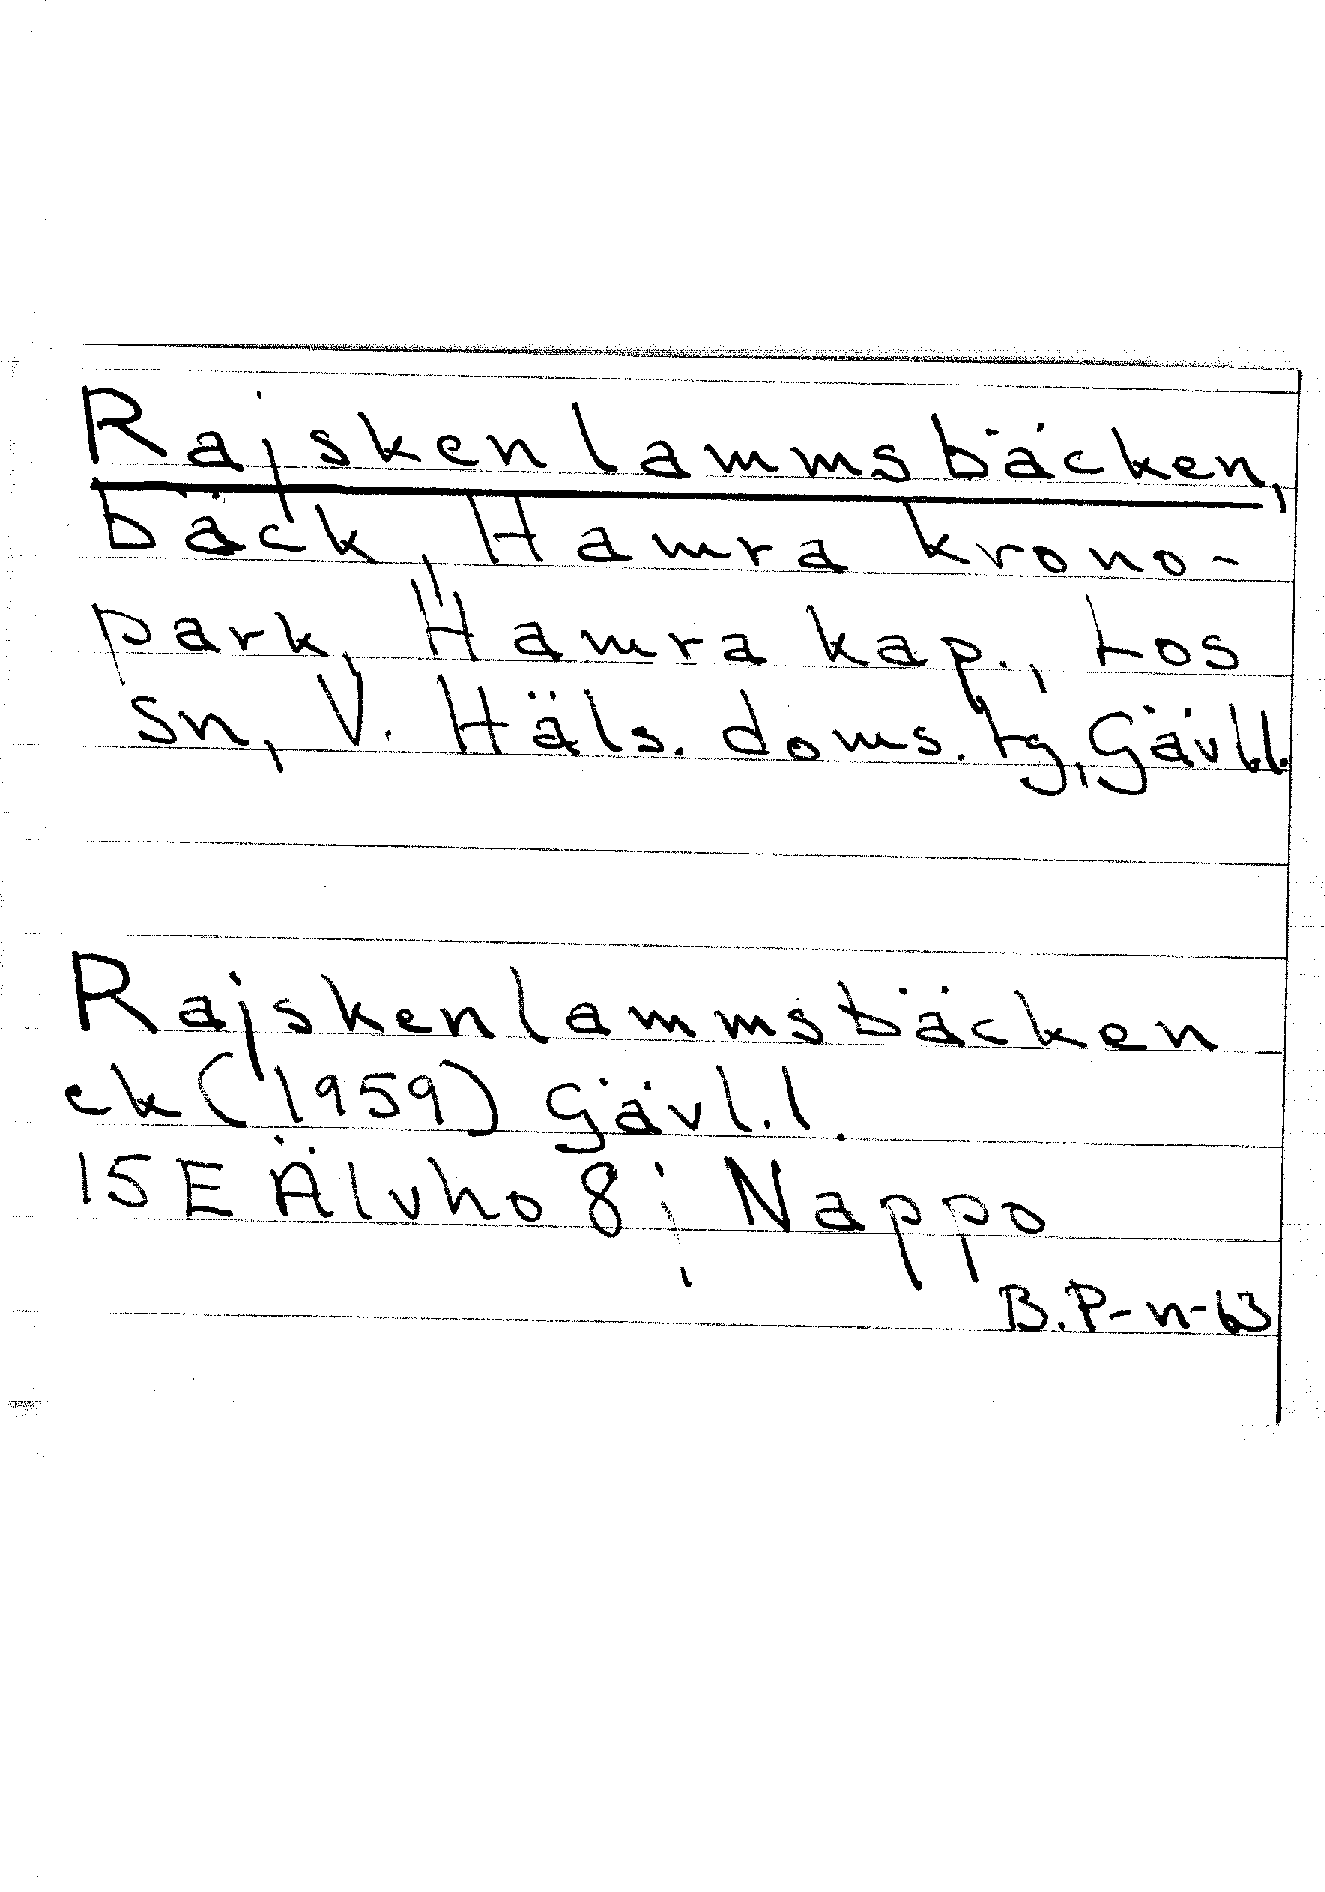 Rajskenlammsbäcken,
bäck, Hamra krono-
park, Hamra kap., Los
sn, V. Häls. doms. tg, Gävl.l.
Rajskenlammsbäcken
ek (1959) Gävl.l.
15E Älvho 8; Nappo
B.P-n-63